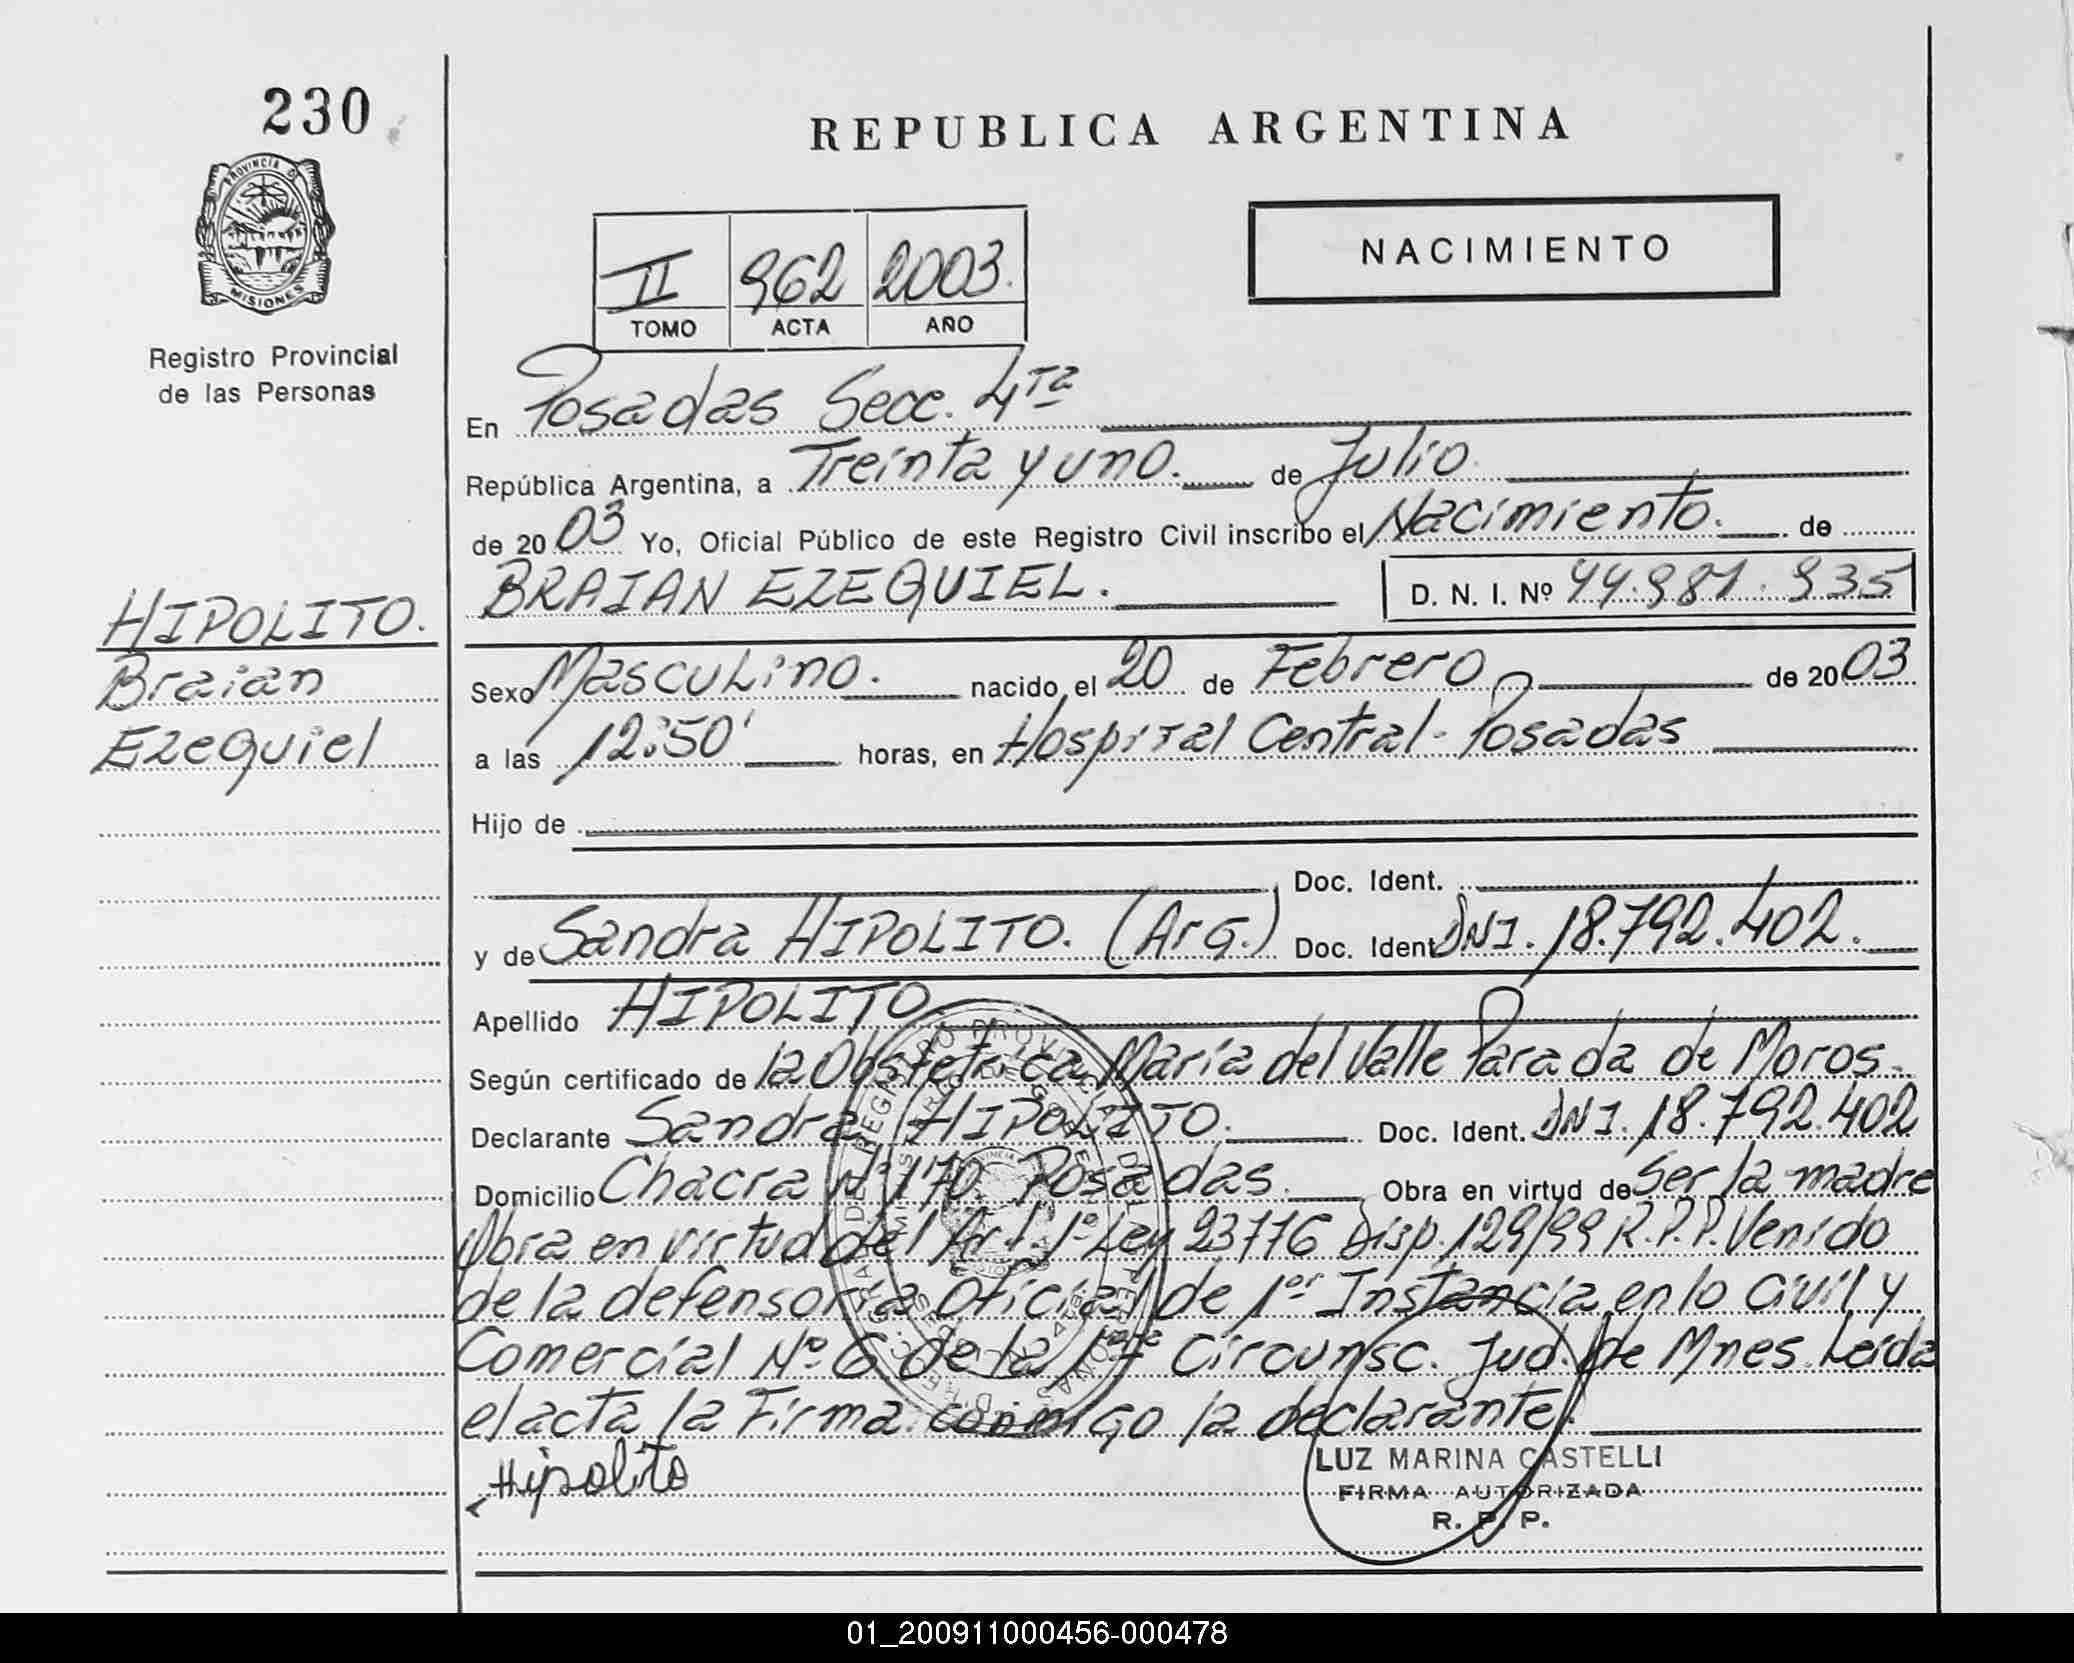 230
PROVINCIA DE
MISIONES
Registro Provincial
de las Personas
HIPOLITO.
Braian
Ezequiel
REPUBLICA ARGENTINA
II 962 2003.
TOMO ACTA AÑO
NACIMIENTO
En Posadas Secc. 4ta
República Argentina, a Treinta y uno. de Julio.
de 2003 Yo, Oficial Público de este Registro Civil inscribo el Nacimiento. de
BRAIAN EZEQUIEL. D. N. I. Nº 44.981.935
Sexo Masculino. nacido el 20 de Febrero de 2003
a las 12:50' horas, en Hospital Central - Posadas
Hijo de
Doc. Ident.
y de Sandra HIPOLITO. (Arg.) Doc. Ident DNI. 18.792.402.
Apellido HIPOLITO
Según certificado de la Obstetrica Maria del Valle Parada de Moros.
Declarante Sandra HIPOLITO. Doc. Ident. DNI. 18.792.402
Domicilio Chacra Nº 170. Posadas. Obra en virtud de Ser la madre
Obra en virtud del Art. 1º Ley 23776 Disp. 129/99 R.P.P. Venido
de la defensoria oficial de 1er Instancia en lo Civil y
Comercial Nº 6 de la 1ra Circunsc. Jud. de Mnes. Leida
el acta la Firma conmigo la declarante.
Hipolito
LUZ MARINA CASTELLI
FIRMA AUTORIZADA
R. P. P.
01_200911000456-000478